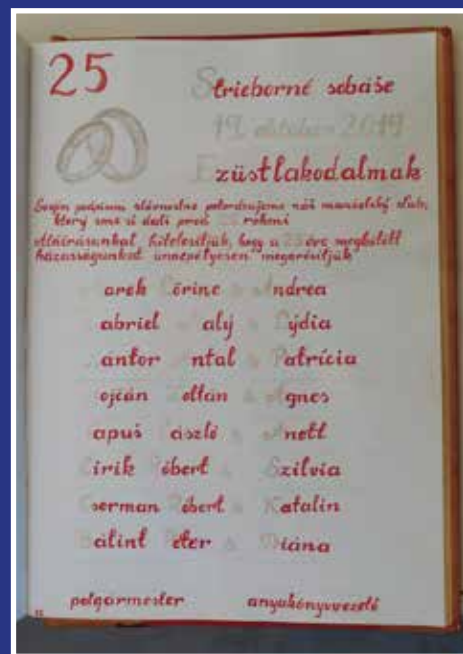 25
Strieborné sobáše
19. október 2019
Ezüstlakodalmak
Svojim podpisom slávnostne potvrdzujeme náš manželský sľub,
ktorý sme si dali pred 25 rokmi
Aláírásunkal hitelesítjük, hogy a 25 éve megkötött
házasságunkat ünnepélyesen megerősítjük
Marek Lőrinc & Andrea
Gabriel Maly & Lýdia
Kántor Antal & Patrícia
Vojčán Zoltán & Agnes
László & Anett
Róbert & Szilvia
Cserman Róbert & Katalin
Bálint Péter & Diána
polgármester anyakönyvvezető